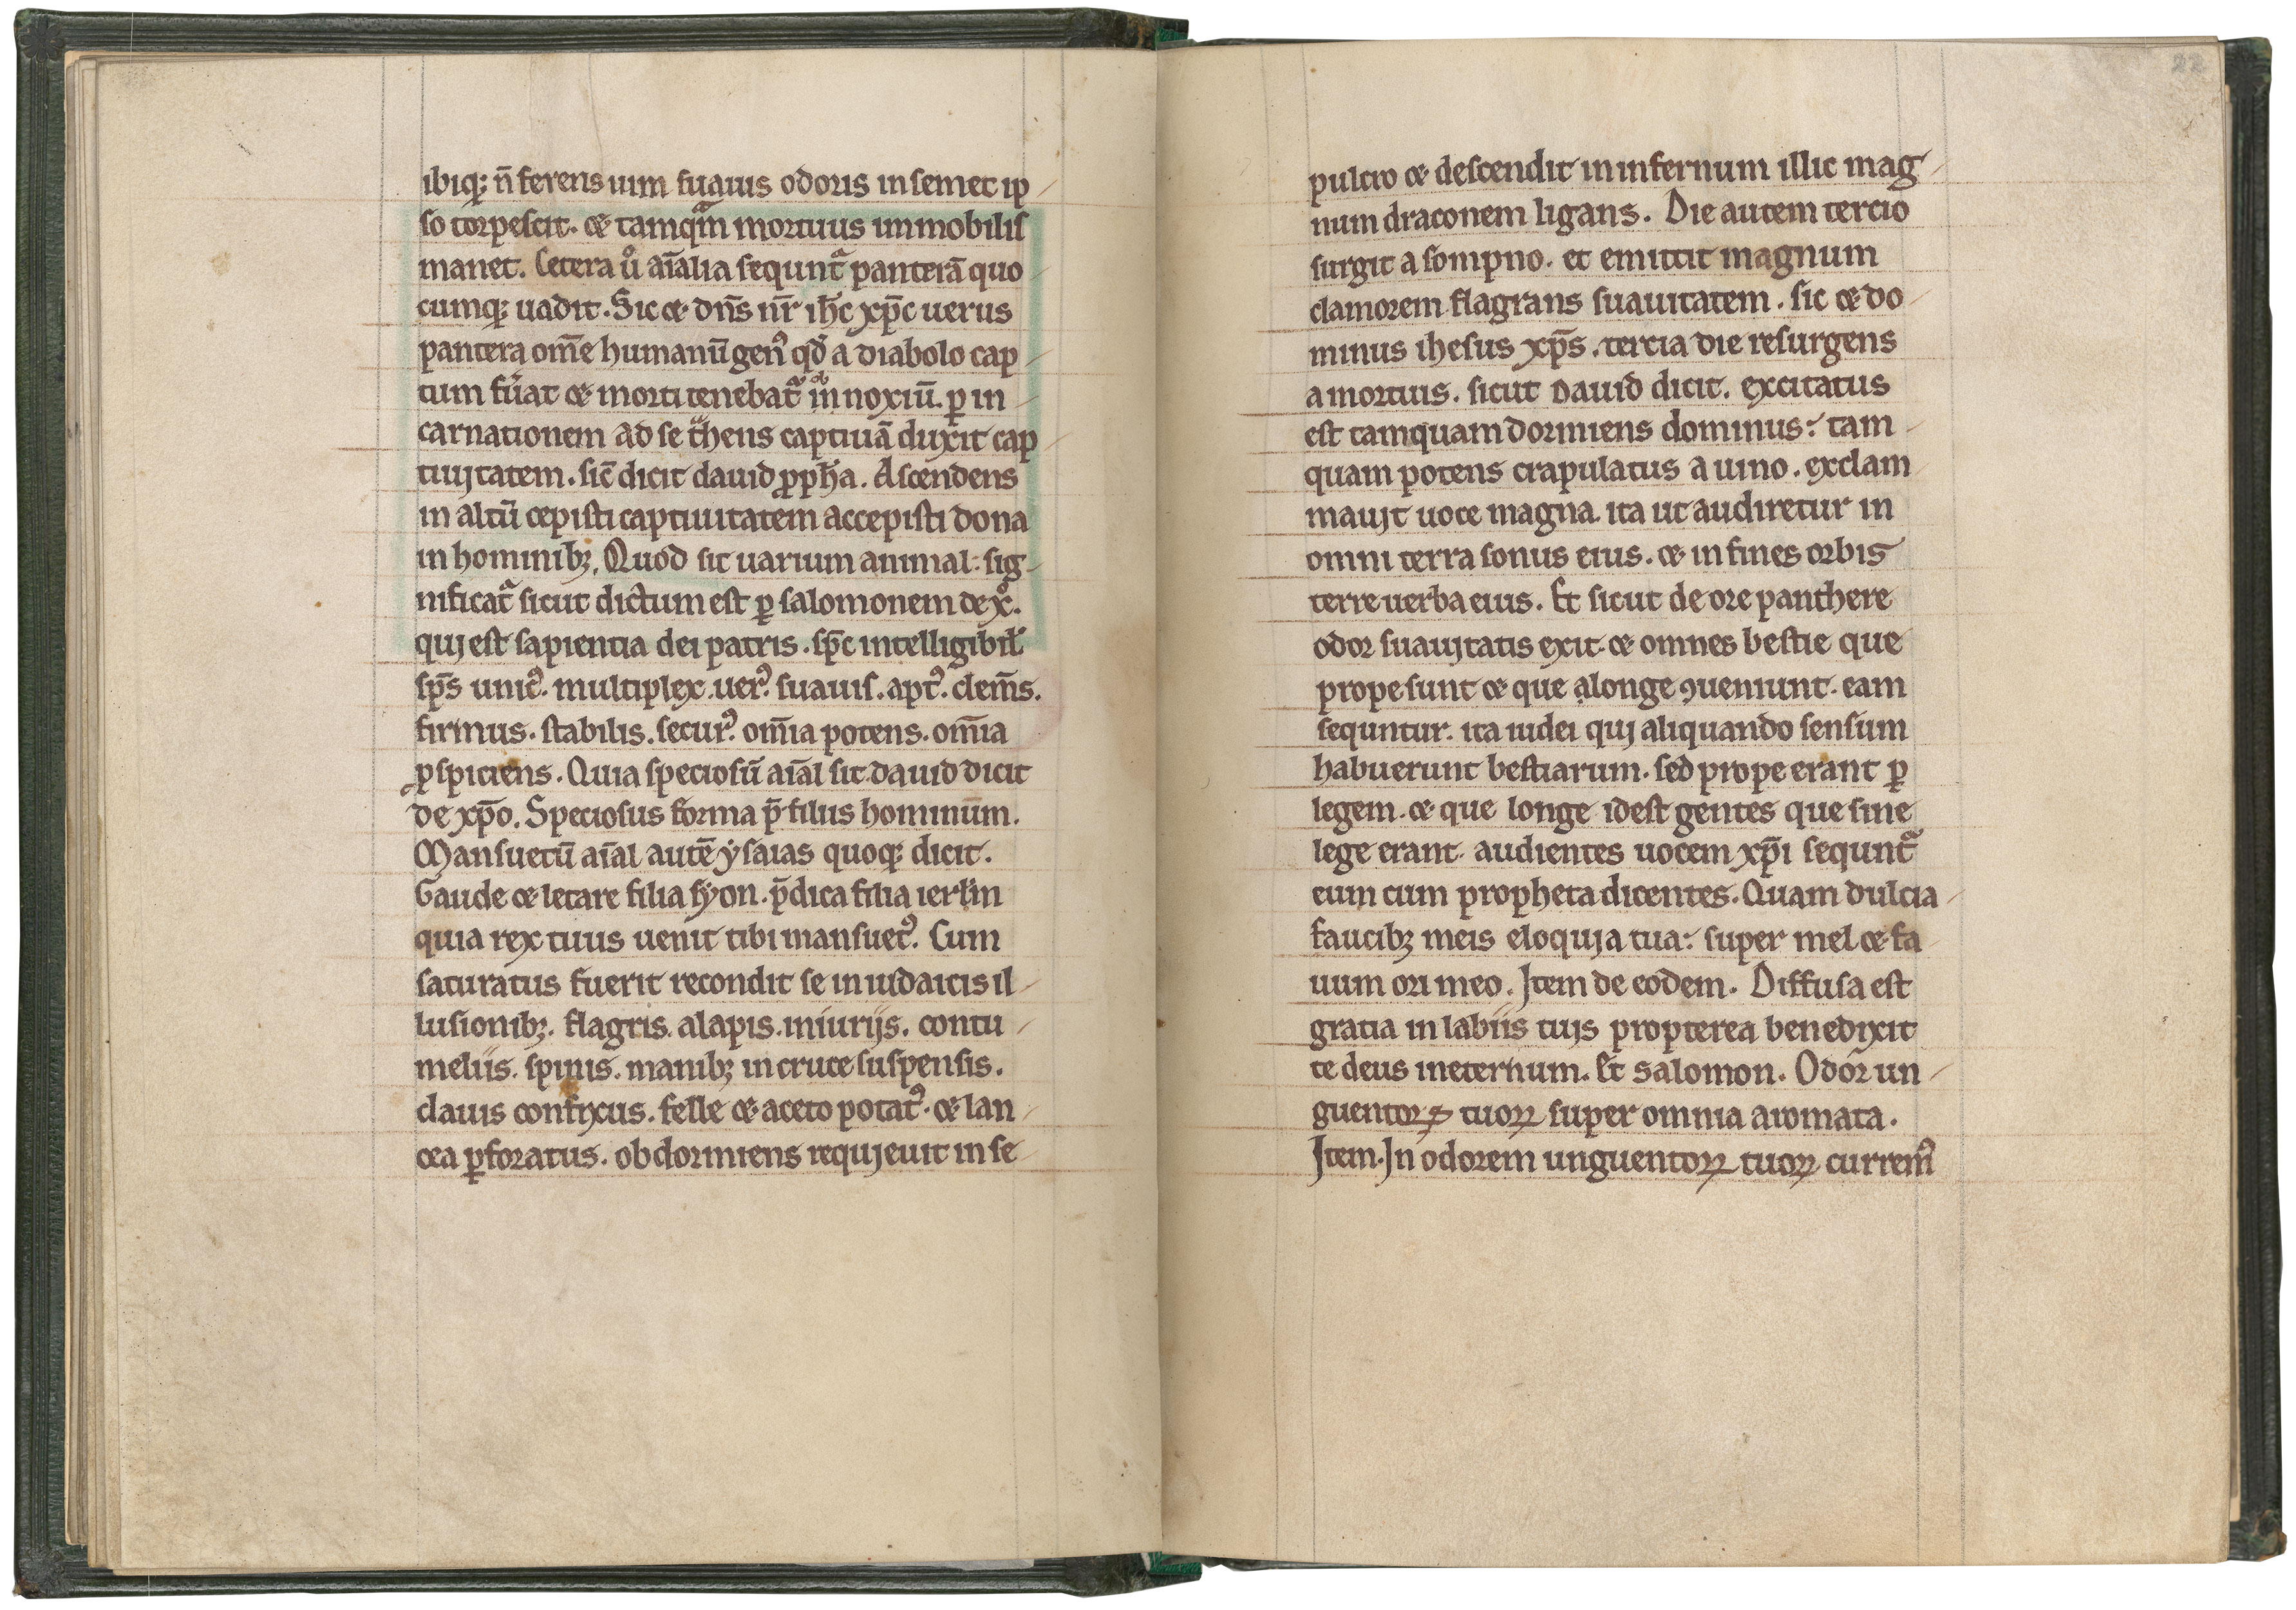 ibiq; n̄ ferens uim suauis odoris in semet ip
so torpescit. et tamqm̄ mortuus immobilis
manet. Cetera uº aīalia sequntᷓ panterā quo
cumq; uadit. Sic et dn̄s nr̄ ihc̄ xpc̄ uerus
pantera om̄e humanū genꝰ qd̄ a diabolo cap
tum fu̾at et morti tenebatᷓ innoxiū. ꝑ in
carnationem ad se thens captiuā duxit cap
tiuitatem. sic̄ dicit dauid ꝓph̄a. Ascendens
in altū cepisti captiuitatem accepisti dona
in hominibꝫ. Quod sit uarium animal: sig
nificatᷓ sicut dictum est ꝑ salomonem de xº.
qui est sapientia dei patris. sp̄c intelligibil̾
sp̄s unicꝰ. multiplex. uerꝰ. suauis. aptꝰ. clem̄s.
firmus. stabilis. securꝰ. om̄ia potens. om̄ia
ꝑspiciens. Quia speciosū aīal sit dauid dicit
de xp̄o. Speciosus forma p̄ filiis hominum.
Mansuetū aīal autē ẏsaias quoq; dicit.
Gaude et letare filia sẏon. p̄dica filia ierlm̄
quia rex tuus uenit tibi mansuetꝰ. Cum
saturatus fuerit recondit se in iudaicis il
lusionibꝫ. flagris. alapis. iniuriis. contu
meliis. spinis. manibꝫ in cruce suspensis.
clauis confixus. felle et aceto potatꝰ. et lan
cea ꝑforatus. obdormiens requieuit in se
22
pulcro et descendit in infernum illic mag
num draconem ligans. Die autem tercio
surgit a sompno. et emittit magnum
clamorem flagrans suauitatem. sic et do
minus ihesus xp̄s. tercia die resurgens
a mortuis. sicut dauid dicit. excitatus
est tamquam dormiens dominus: tam
quam potens crapulatus a uino. exclam
mauit uoce magna. ita ut audiretur in
omni terra sonus eius. et in fines orbis
terre uerba eius. Et sicut de ore panthere
odor suauitatis exit. et omnes bestie que
prope sunt et que alonge ꝯueniunt. eam
sequntur. ita iudei qui aliquando sensum
habuerunt bestiarum. sed prope erant ꝑ
legem. et que longe idest gentes que sine
lege erant. audientes uocem xp̄i sequntᷓ
eum cum propheta dicentes. Quam dulcia
faucibꝫ meis eloquia tua: super mel et fa
uum ori meo. Item de eodem. Diffusa est
gratia in labiis tuis propterea benedixit
te deus ineternum. Et salomon. Odor un
guentoꝝ tuoꝝ super omnia aromata.
Item. In odorem unguentoꝝ tuoꝝ curremꝰ